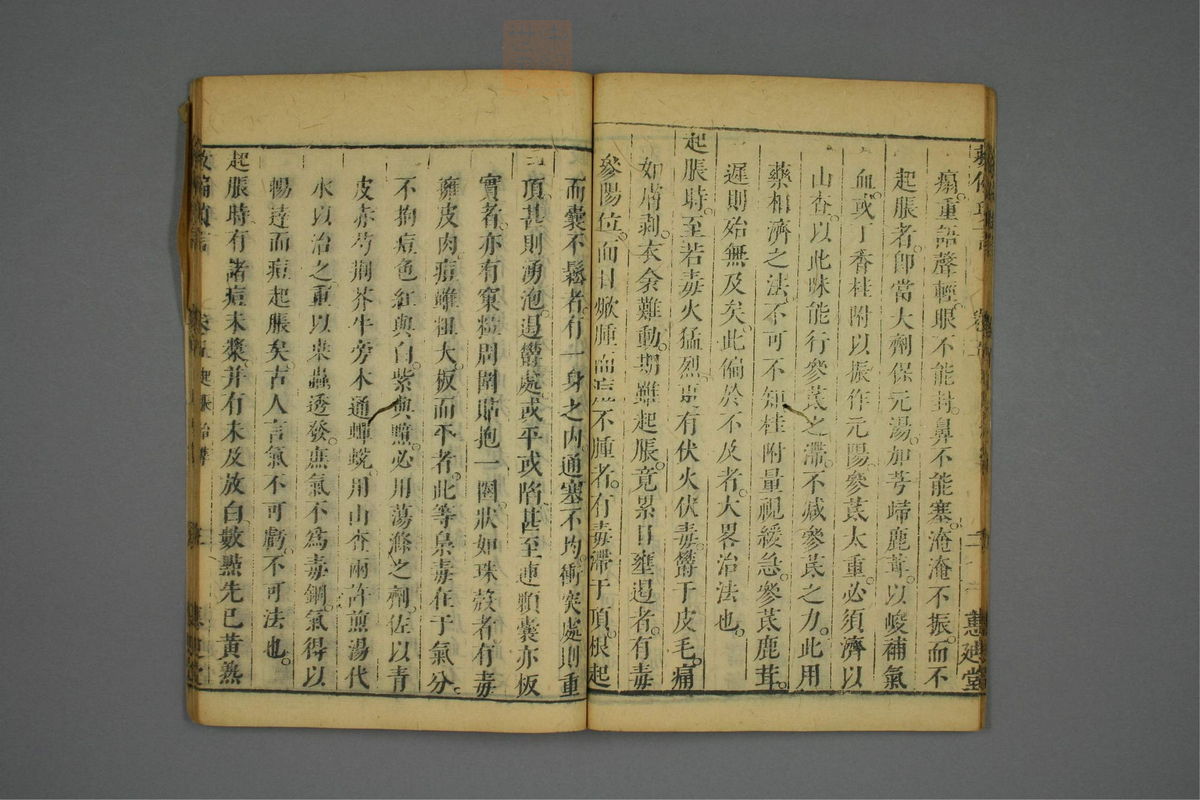 惠迪堂
瘍。重語聲輕。眼不能封。鼻不能塞。淹淹不振。而不
起脹者。卽當大劑保元湯。加芎歸鹿茸。以峻補氣
血。或丁香桂附以振作元陽。參茋太重。必須濟以
山查。以此味能行參茋之滯。不减參茋之力。此用
藥相濟之法。不可不知。桂附量視緩急。參茋鹿茸。
遲則殆無及矣。此偏於不及者。大畧治法也。
起脹時。至若毒火猛烈。更有伏火伏毒。欝于皮毛。痛
如膚剥。衣衾難動。期雖起脹。竟累日壅遏者。有毒
參陽位。面目焮腫 不腫者。有毒滯于頂。根起
而囊不鬆者。有一身之内。通塞不均。衝突處則重
頂。甚則湧泡。遏欝處。或平或陷。甚至連顆。囊亦板
實者。亦有窠粒周圍。貼抱一圈。狀如珠殼者。有毒
雍皮肉。痘雖粗大。板而平者。此等梟毒在于氣分。
不拘痘色紅與白。紫與黯。必用蕩滌之劑。佐以青
皮赤芍荆芥牛旁木通蟬蛻。用山查兩許煎湯代
水以治之。重以桒蟲透發。庶氣不爲毒錮。氣得以
揚達而痘起脹矣。古人言氣不可虧。不可法也。
起脹時。有諸痘未漿。并有未及放白。數點先已黃熟
救偏瑣言